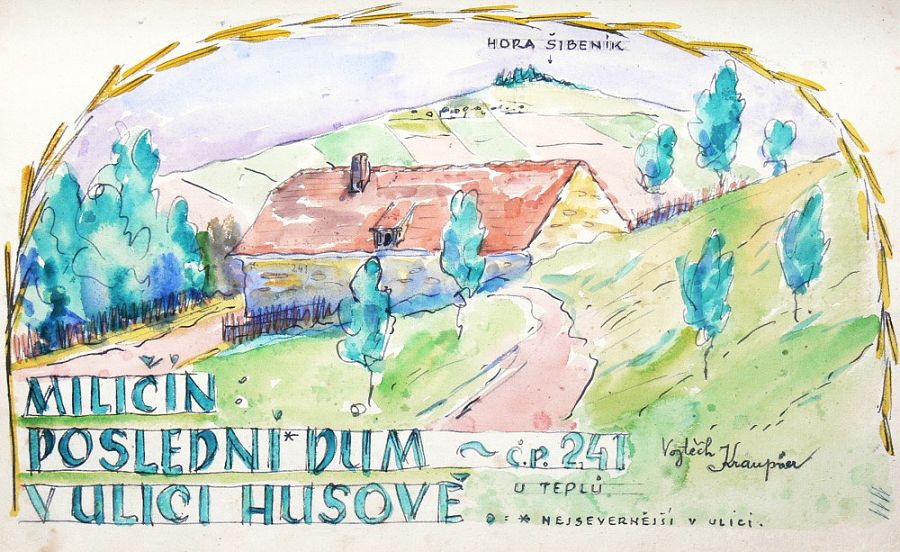 HORA ŠIBENÍK
241
MILIČÍN
POSLEDNÍ* DŮM ~ č.p. 241
V ULICI HUSOVĚ
U TEPLŮ
= * NEJSEVERNĚJŠÍ V ULICI.
Vojtěch Kraupner